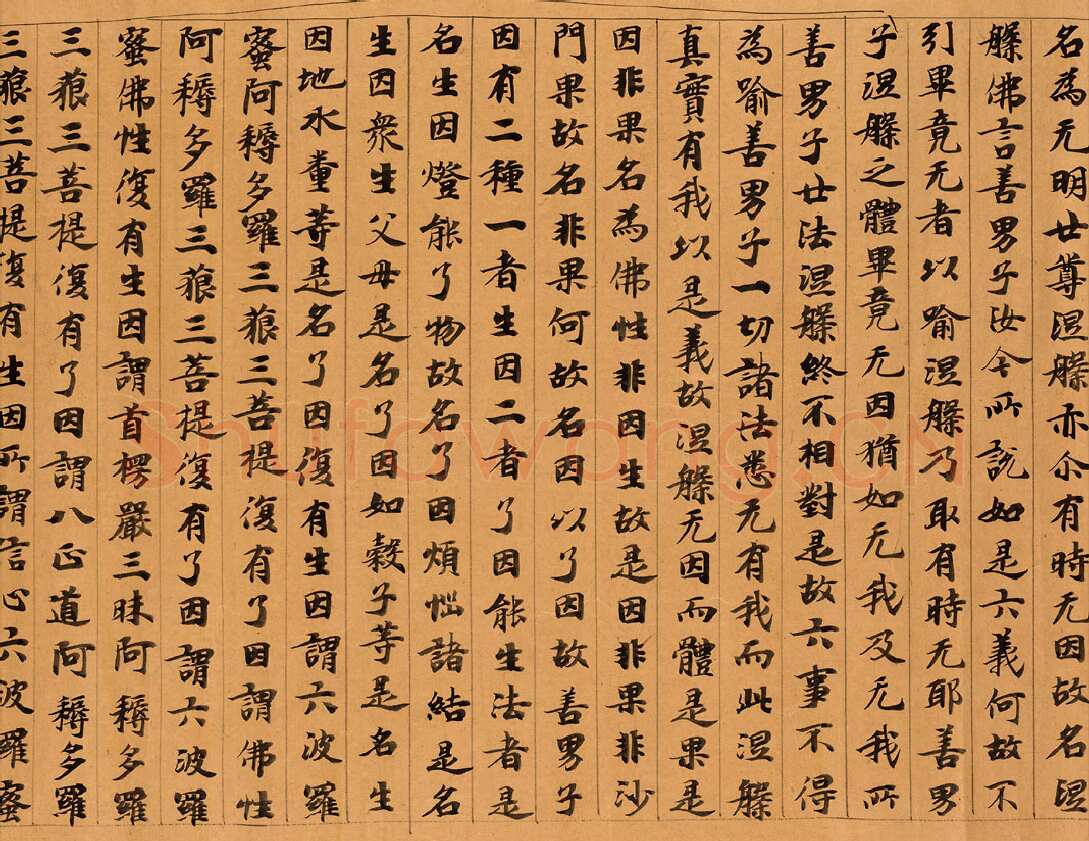 名為无明世尊涅槃亦尒有時无因故名涅
槃佛言善男子汝今所說如是六義何故不
引畢竟无者以喻涅槃乃取有時无耶善男
子涅槃之體畢竟无因猶如无我及无我所
善男子世法涅槃終不相對是故六事不得
為喻善男子一切諸法悉无有我而此涅槃
真實有我以是義故涅槃无因而體是果是
因非果名為佛性非因生故是因非果非沙
門果故名非果何故名因以了因故善男子
因有二種一者生因二者了因能生法者是
名生因燈能了物故名了因煩惱諸結是名
生因眾生父母是名了因如穀子等是名生
因地水糞等是名了因復有生因謂六波羅
蜜阿耨多羅三藐三菩提復有了因謂佛性
阿耨多羅三藐三菩提復有了因謂六波羅
蜜佛性復有生因謂首楞嚴三昧阿耨多羅
三藐三菩提復有了因謂八正道阿耨多羅
三藐三菩提復有生因所謂信心六波羅蜜
Shufawang.CN